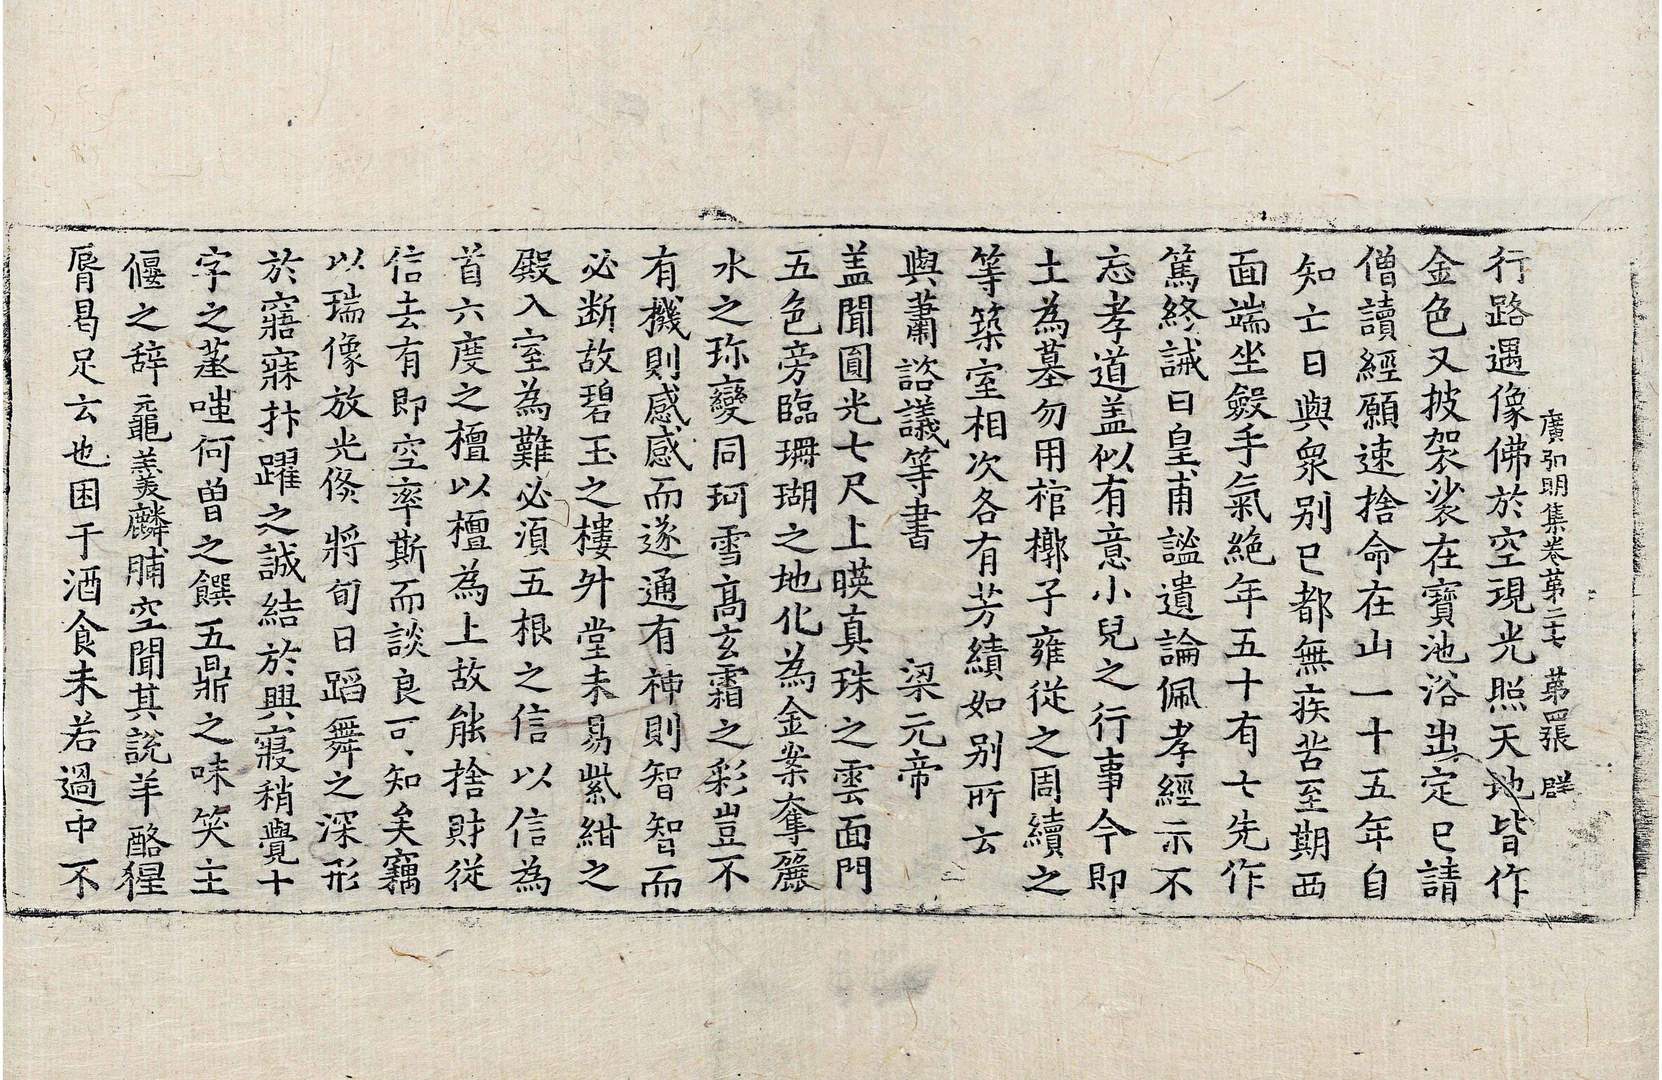 廣弘明集卷第二十七 第四張 群
行路遇像佛於空現光照天地皆作
金色又披袈裟在寶池浴出定已請
僧讀經願速捨命在山一十五年自
知亡日與衆别已都無疾苦至期西
面端坐斂手氣絶年五十有七先作
篤終誡曰皇甫謐遺論佩孝經示不
忘孝道盖似有意小兒之行事今即
土為墓勿用棺槨子雍従之周續之
等築室相次各有芳績如别所云
與蕭諮議等書 梁元帝
盖聞圓光七尺上暎真珠之雲面門
五色旁臨珊瑚之地化為金案奪麗
水之珎變同珂雪高玄霜之彩豈不
有機則感感而遂通有神則智智而
必断故碧玉之樓升堂未易紫紺之
殿入室為難必湏五根之信以信為
首六度之檀以檀為上故能捨財従
信去有即空率斯而談良可知矣竊
以瑞像放光倐將旬日蹈舞之深形
於寤寐抃躍之誠結於興寢稍覺十
字之蒸嗤何曾之饌五鼎之味笑主
偃之辞黿羹麟脯空聞其説羊酪猩
脣曷足云也困于酒食未若過中不